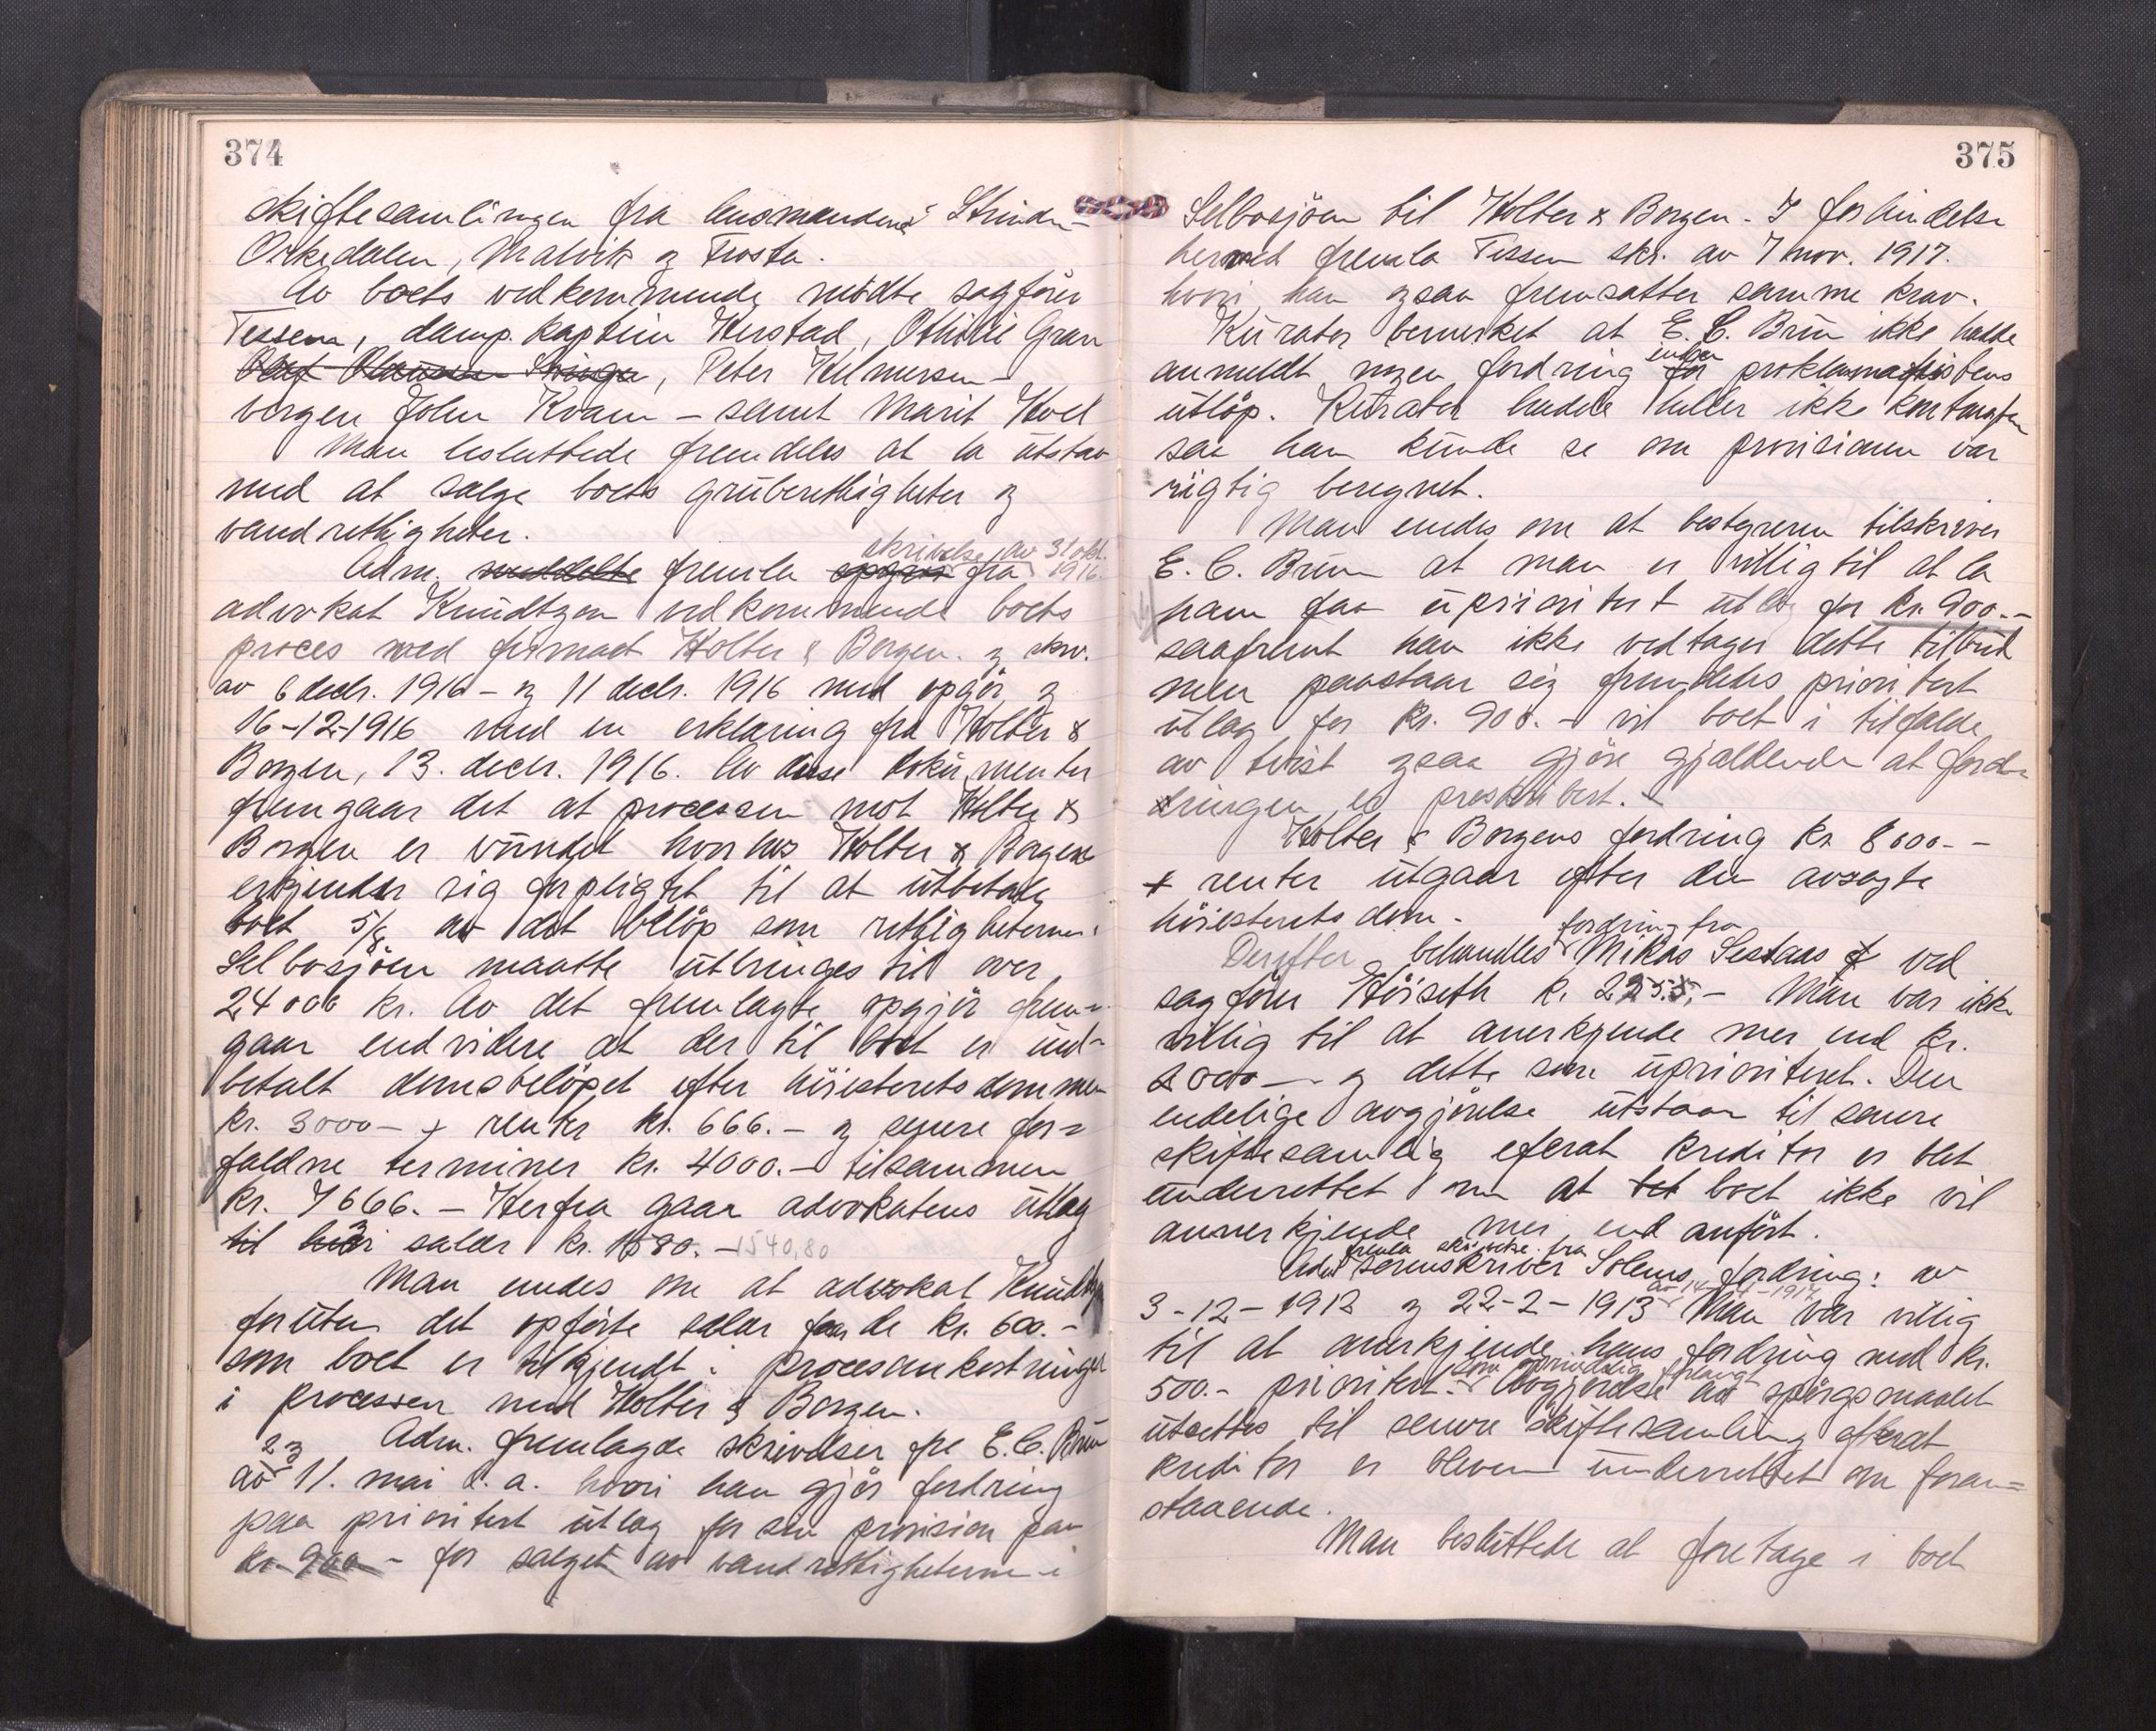 374
skiftesamlingen fra lensmændene i Strinda
Orkedalen, Malvik og Frosta.
Av boets vedkommende mødte sagfører
Tessem, damp. kaptein Kerstad, Othilie Gran
Olaf Olausen, Peter Hilmersen
vergen John Kvam – samt Marit Hoel
Man besluttede fremdeles at la utstaa
med at sælge boets gruberettigheter og
vandrettigheter.
skrivelse av 31 okt. 1916
Adm. meddelte fremla opgjør fra
advokat Knudtzon vedkommende boets
proces med firmaet Holter & Borgen. og skr.
av 6 decbr. 1916 – og 11 decbr. 1916 med opgjør og
16-12-1916 med en erklæring fra Holter &
Borgen, 13. decbr. 1916. Av disse dokumenter
fremgaar det at processen mot Holter &
Borgen er vundet hvorhos Holter & Borgen
erkjender sig forpligtet til at utbetale
boet 5/8 av det beløp som rettigheterne i
Selbosjøen maatte utbringes til over
24000 kr. Av det fremlagte opgjør frem-
gaar endvidere at der til boet er ind-
betalt domsbeløpet efter høiesteretsdommen
kr. 3000 – + renter kr. 666.– og senere for=
faldne terminer kr. 4000.– tilsammen
kr. 7666. – Herfra gaar advokatens utlæg
til salær kr. 1580. – 1540,80
Man enedes om at advokat Knudtzon
foruten det opførte salær faar de kr. 600.–
som boet er tilkjendt i procesomkostninger
i processen med Holter & Borgen.
Adm. fremlagde skrivelser fra E. C. Brun
av 2 og 11. mai d. a. hvori han gjør fordring
paa prioritert utlæg for sin provision paa
kr. 900 – for salget av vandrettigheterne i
375
Selbosjøen til Holter & Borgen. I forbindelse
hermed fremla Tessem skr. av 7 nov. 1917.
hvori han ogsaa fremsatter samme krav.
Kurator bemerket at E. C. Brun ikke hadde
anmeldt nogen fordring inden for proklamafristens
utløp. Kurator hadde heller ikke kontrakten
saa han kunde se om provisionen var
rigtig beregnet.
Man enedes om at bestyreren tilskriver
E. C. Brun at man er villig til at la
ham faa uprioritert utlæg for kr. 900.–
saafremt han ikke vedtager dette tilbud
men paastaar sig fremdeles prioritert
utlæg for kr. 900. – vil boet i tilfælde
av tvist ogsaa gjøre gjældende at ford-
ringen er preskribert.
Holter & Borgens fordring kr. 8000.–
+ renter utgaar efter den avsagte
høiesteretsdom.
Derefter behandles fordring fra Nikas Sestaas ved
sagfører Høiseth kr. 2255.– Man var ikke
villig til at anerkjende mer end kr.
2000 – og dette som uprioritert. Den
endelige avgjørelse utstaar til senere
skiftesamling efterat kreditor er blit
underrettet om at boet ikke vil
annerkjende mer end anført.
Adm. fremla skrivelse fra sorenskriver Solems fordring: av
3-12-1912 og 22-2-1913 Man var villig
til at anerkjende hans fordring med kr.
500.– prioritert. som oprindelig forlangt Avgjørelse av spørgsmaalet
utsættes til senere skiftesamling efterat
kreditor er bleven underrettet om foran=
staaende.
Man besluttede at foretage i boet